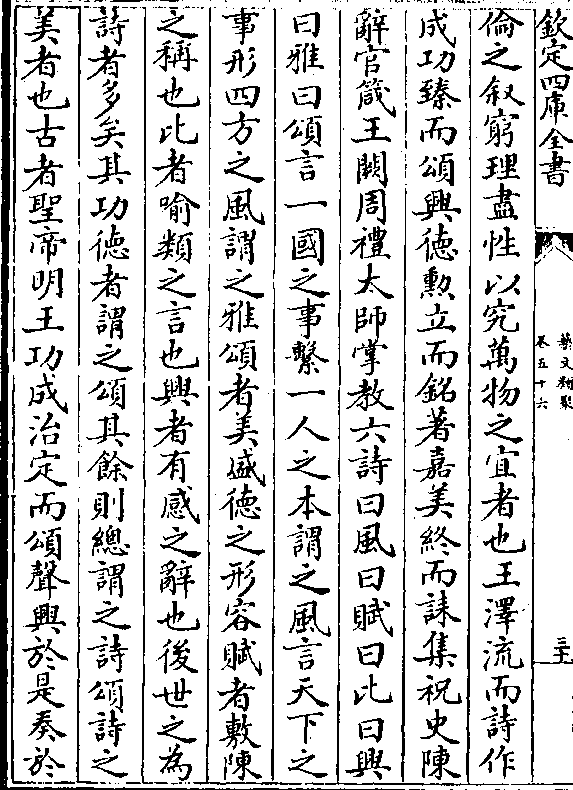 欽定四庫全書
藝文類聚
卷五十六
三十
倫之叙窮理盡性以究萬物之宜者也王澤流而詩作
成功臻而頌興德勲立而銘著嘉美終而誄集祝史陳
辭官箴王闕周禮太師掌教六詩曰風曰賦曰比曰興
曰雅曰頌言一國之事繫一人之本謂之風言天下之
事形四方之風謂之雅頌者美盛德之形容賦者敷陳
之稱也比者喻類之言也興者有感之辭也後世之為
詩者多矣其功德者謂之頌其餘則總謂之詩頌詩之
美者也古者聖帝明王功成治定而頌聲興於是奏於